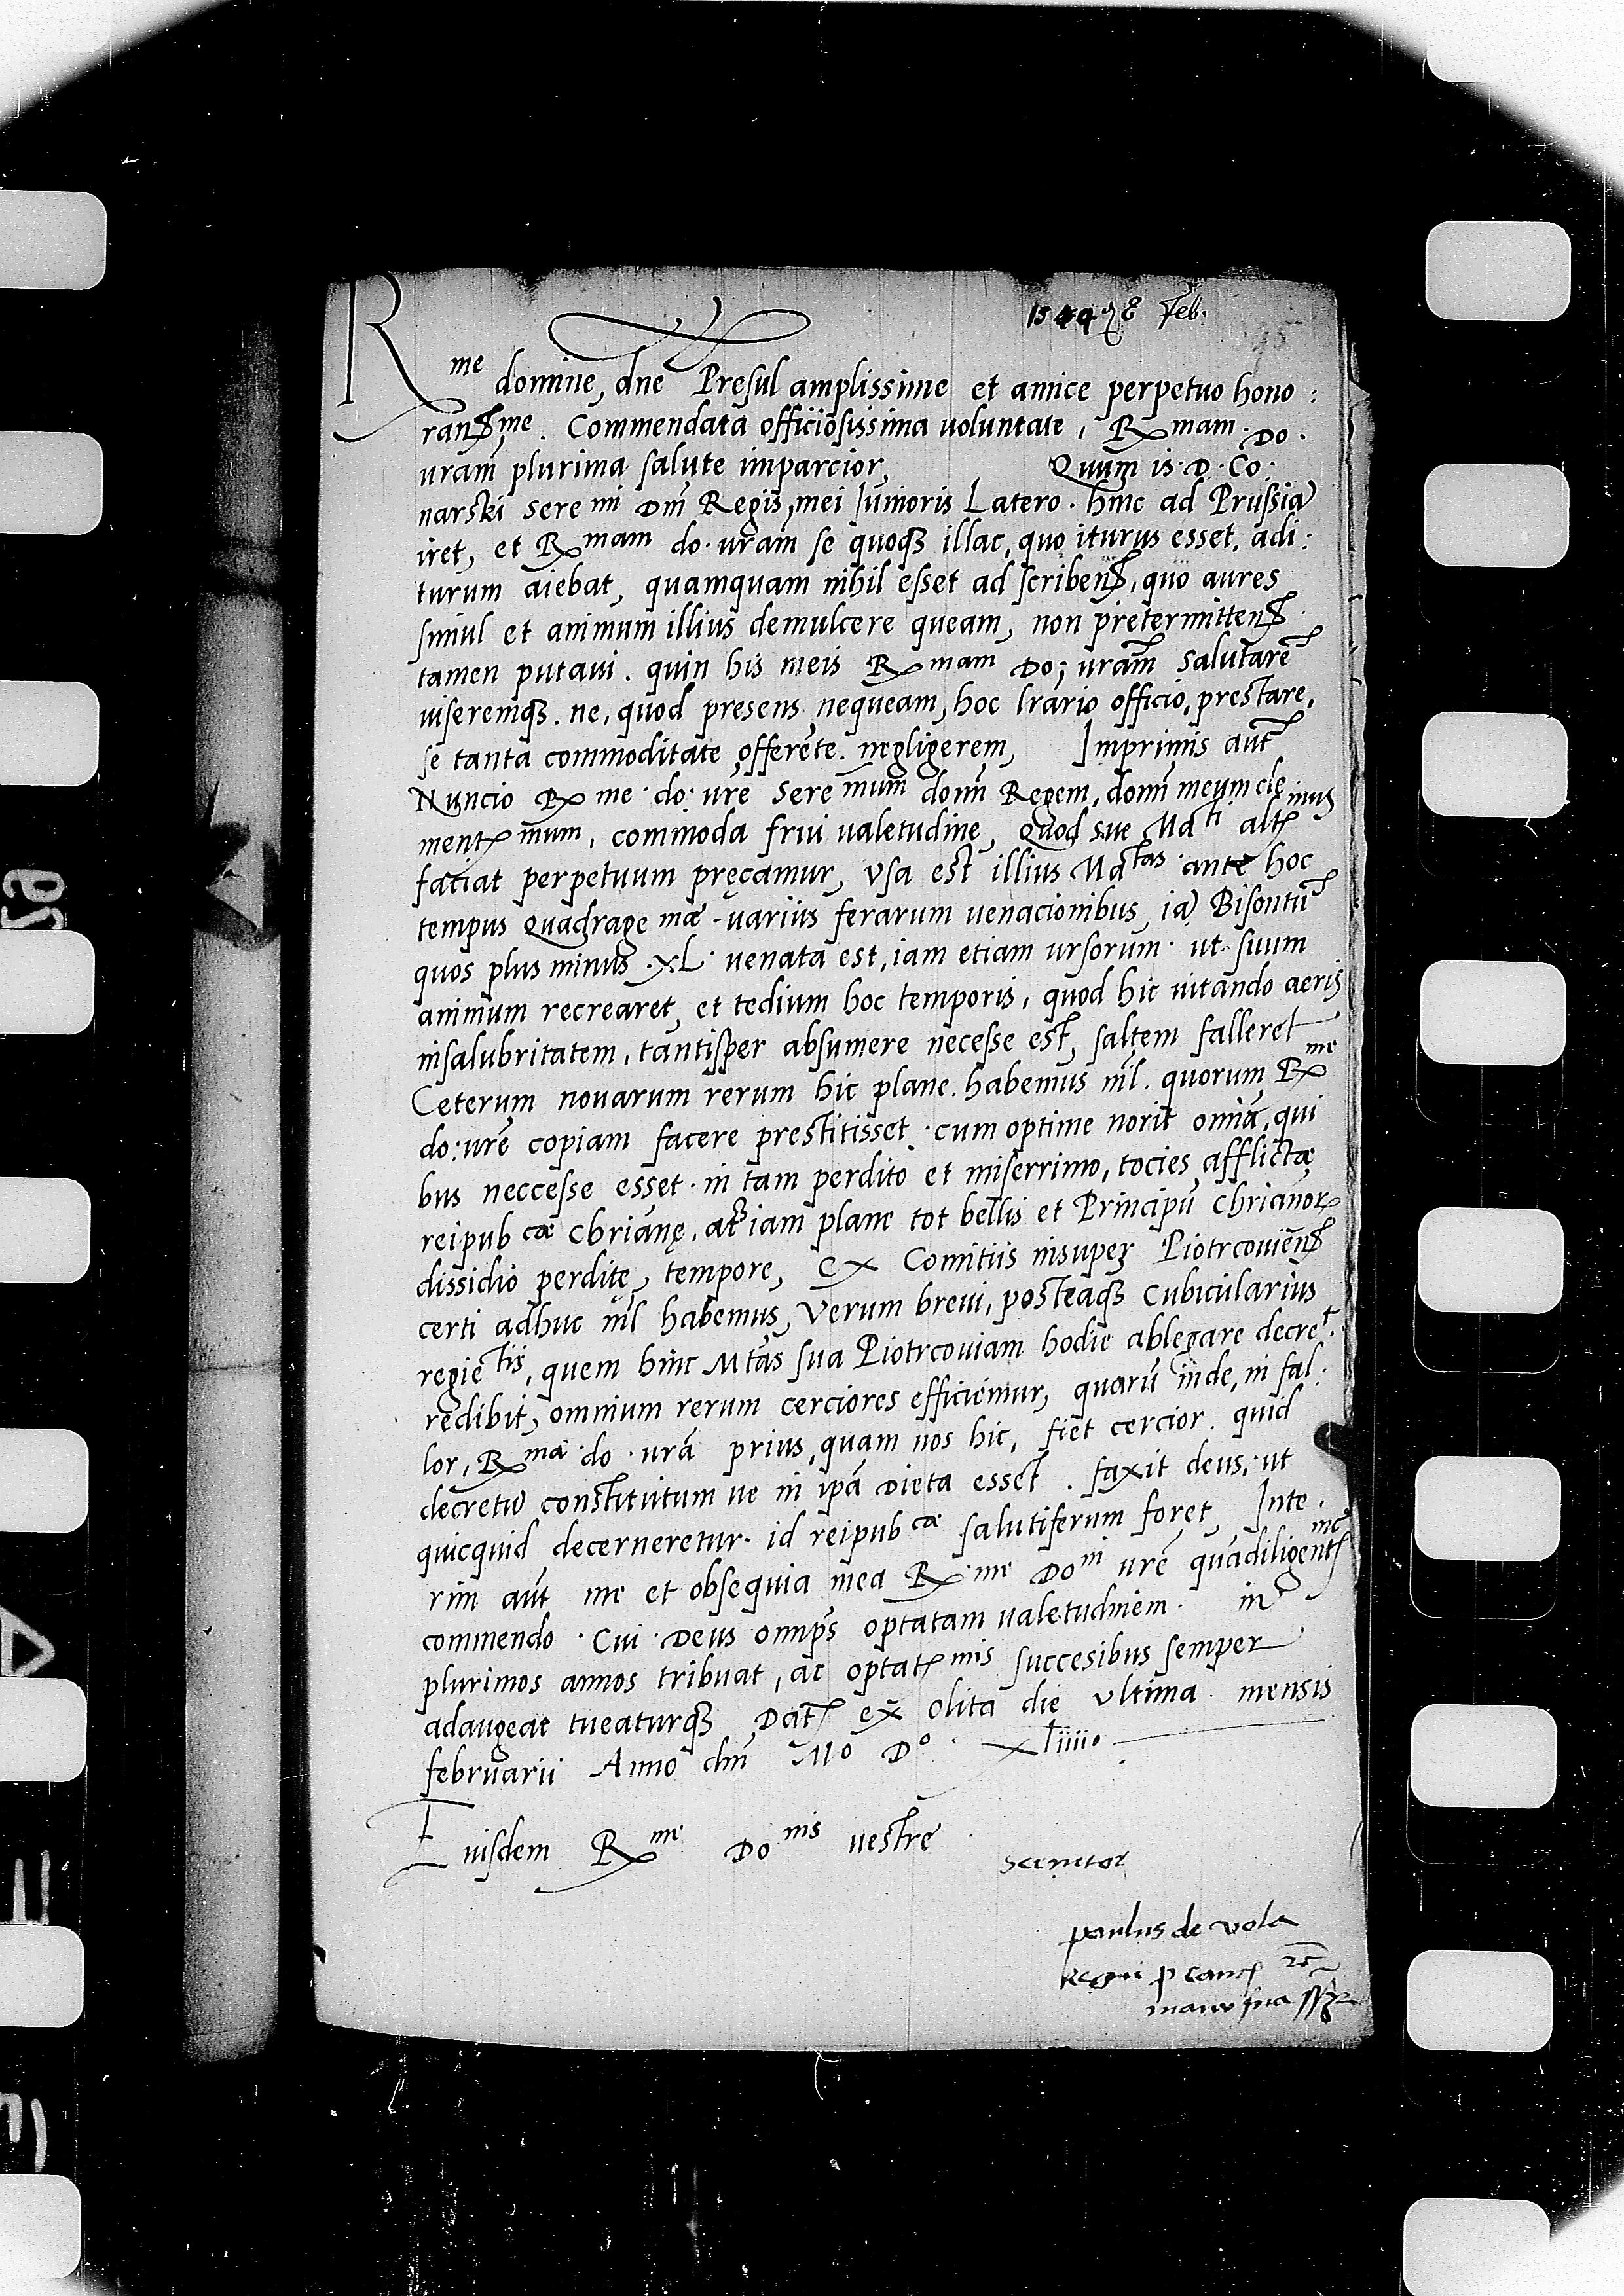 1544 28 Feb.
Rme domine, dne Presul amplissime et amice perpetuo hono:
ransme. Commendata officiosissima uoluntate, Rxmam. Do.
uram plurima salute imparcior, Quum is. D. Co:
narski Sere mi Dni Regis, mei Iunioris Latero. hinc ad Prussia
iret, et Rxmam do. uram se quoqz illac, quo iturus esset, adi:
turum aiebat, quamquam nihil esset ad scribens, quo aures
simul et animum illius demulcere queam, non pretermittens
tamen putaui. quin his meis Rxmam Do; uram salutare
uiseremqz. ne, quod presens nequeam, hoc lrario officio, prestare,
se tanta commoditate offerente. negligerem, Imprimis aut
Nuncio Rx me do: ure Sere mum domi Regem, domi meum cle
ment mum, commoda frui ualetudine, Quod sue Mati altimus
faciat perpetuum pręcamur, Vsa est illius Matas ante hoc
tempus Quadrage mæ. uariis ferarum uenacionibus, ia Bisontu
quos plus minus .XL. uenata est, iam etiam ursorum. ut suum
animum recrearet, et tedium hoc temporis, quod hic uitando aeris
insalubritatem, tantisper absumere necesse est, saltem falleret
Ceterum nouarum rerum hic plane. habemus nil. quorum Rxme
do: ure copiam facere prestitisset. cum optime norit omia, qui
bus neccesse esset. in tam perdito et miserrimo, tocies afflictæ
reipub cæ Chrianę, at iam plane tot bellis et Principu Chrianor
dissidio perditę, tempore, Ex Comitiis insuper Piotrcouiens
certi adhuc nil habemus, Verum breui, posteaqz Cubicularius
regie tis, quem hinc Mtas sua Piotrcouiam hodie ablegare decret.
redibit, omnium rerum cerciores efficiemur, quaru inde, ni fal:
lor, Rxma do. ura prius, quam nos hic, fiet cercior. quid
decretu constitutum ue in ipa Dieta esset. faxit deus, ut
quicquid decerneretur. id reipub cæ salutiferum foret, Inte.
rim aut me et obsequia mea Rxme Doni ure quadiligentme
commendo. Cui Deus omps optatam ualetudinem. in
plurimos annos tribuat, ac optat mis succesibus semper
adaugeat tueaturqz Dat ex Olita die Vltima mensis
februarii Anno dni Mo Do xliiiio
Eiusdem Rxme Donis uestre
paulus de vola
manu sua